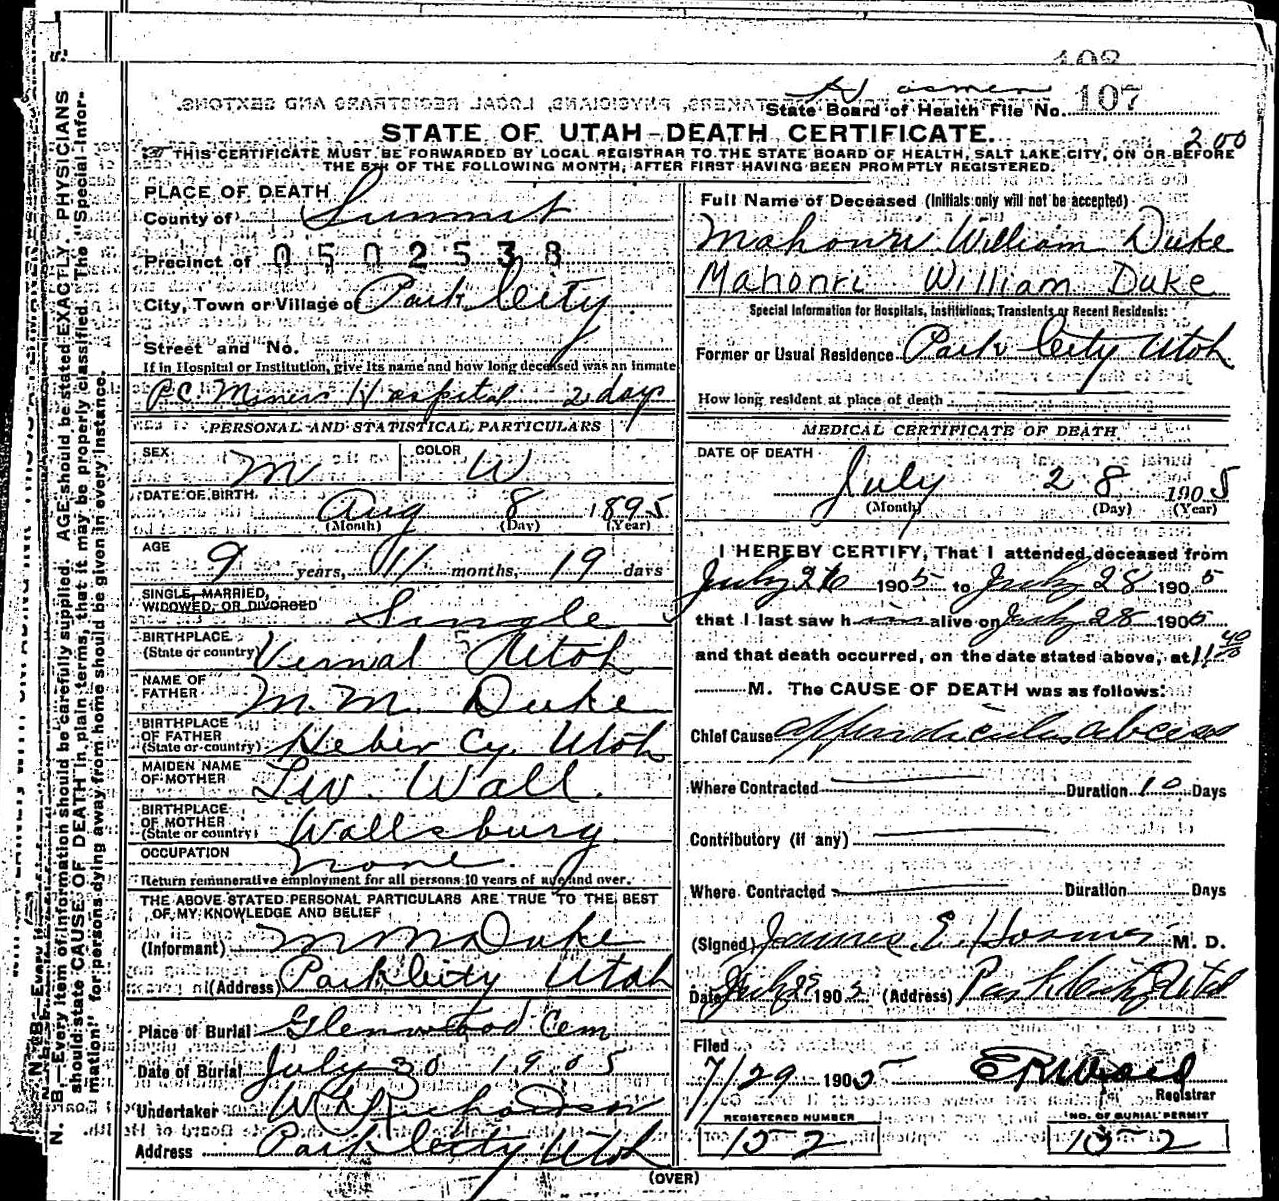 108
Hosmer
State Board of Health File No. 107
STATE OF UTAH-DEATH CERTIFICATE.
200
THIS CERTIFICATE MUST BE FORWARDED BY LOCAL REGISTRAR TO THE STATE BOARD OF HEALTH, SALT LAKE CITY, ON OR BEFORE
THE 5TH OF THE FOLLOWING MONTH, AFTER FIRST HAVING BEEN PROMPTLY REGISTERED.
PLACE OF DEATH
County of Summit
Precinct of 0502538
City, Town or Village of Park City
Street and No.
If in Hospital or Institution, give its name and how long deceased was an inmate
P.C. Miners Hospital 2 days
PERSONAL AND STATISTICAL PARTICULARS
SEX M COLOR W
DATE OF BIRTH
Aug 8 1895
(Month) (Day) (Year)
AGE
9 years, 11 months, 19 days
SINGLE, MARRIED,
WIDOWED, OR DIVORCED Single
BIRTHPLACE
(State or country) Vernal Utah
NAME OF
FATHER M. M. Duke
BIRTHPLACE
OF FATHER
(State or country) Heber Cy. Utah
MAIDEN NAME
OF MOTHER Liv. Wall.
BIRTHPLACE
OF MOTHER
(State or country) Wallsburg
OCCUPATION none.
Return remunerative employment for all persons 10 years of age and over.
THE ABOVE STATED PERSONAL PARTICULARS ARE TRUE TO THE BEST
OF MY KNOWLEDGE AND BELIEF
(Informant) M M Duke
(Address) Park City Utah
Place of Burial Glenwood Cem
Date of Burial July 30 1905
Undertaker W Richardson
Address Park City Utah
Full Name of Deceased (Initials only will not be accepted)
Mahonri William Duke
Mahonri William Duke
Special Information for Hospitals, Institutions, Transients or Recent Residents:
Former or Usual Residence Park City Utah
How long resident at place of death
MEDICAL CERTIFICATE OF DEATH
DATE OF DEATH
July 28 1905
(Month) (Day) (Year)
I HEREBY CERTIFY, That I attended deceased from
July 26 1905 to July 28 1905
that I last saw him alive on July 28 1905
and that death occurred, on the date stated above, at 11
M. The CAUSE OF DEATH was as follows:
Chief Cause appendicular abcess
Where Contracted Duration 10 Days
Contributory (if any)
Where Contracted Duration Days
(Signed) James E. Hosmer M. D.
Date July 29 1905 (Address) Park City Utah
Filed
7/29 1905 E R Ward
Registrar
REGISTERED NUMBER NO. OF BURIAL PERMIT
152 152
(OVER)
N. B.—Every item of information should be carefully supplied. AGE should be stated EXACTLY. PHYSICIANS
should state CAUSE OF DEATH in plain terms, that it may be properly classified. The "Special Infor-
mation" for persons dying away from home should be given in every instance.